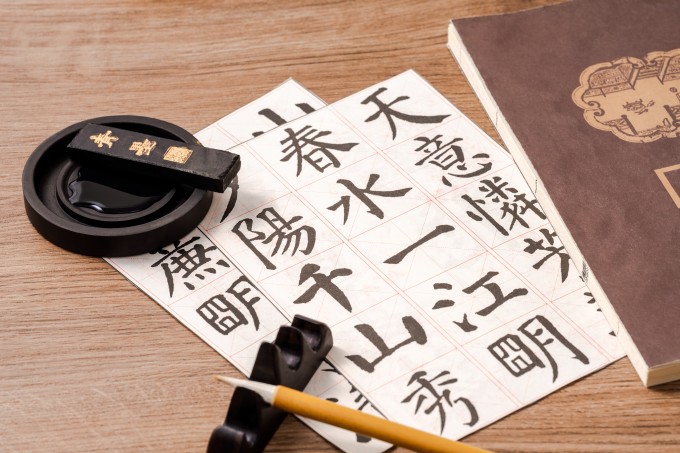 青墨
天意憐芳
春水一江明
陽千山秀
山
明